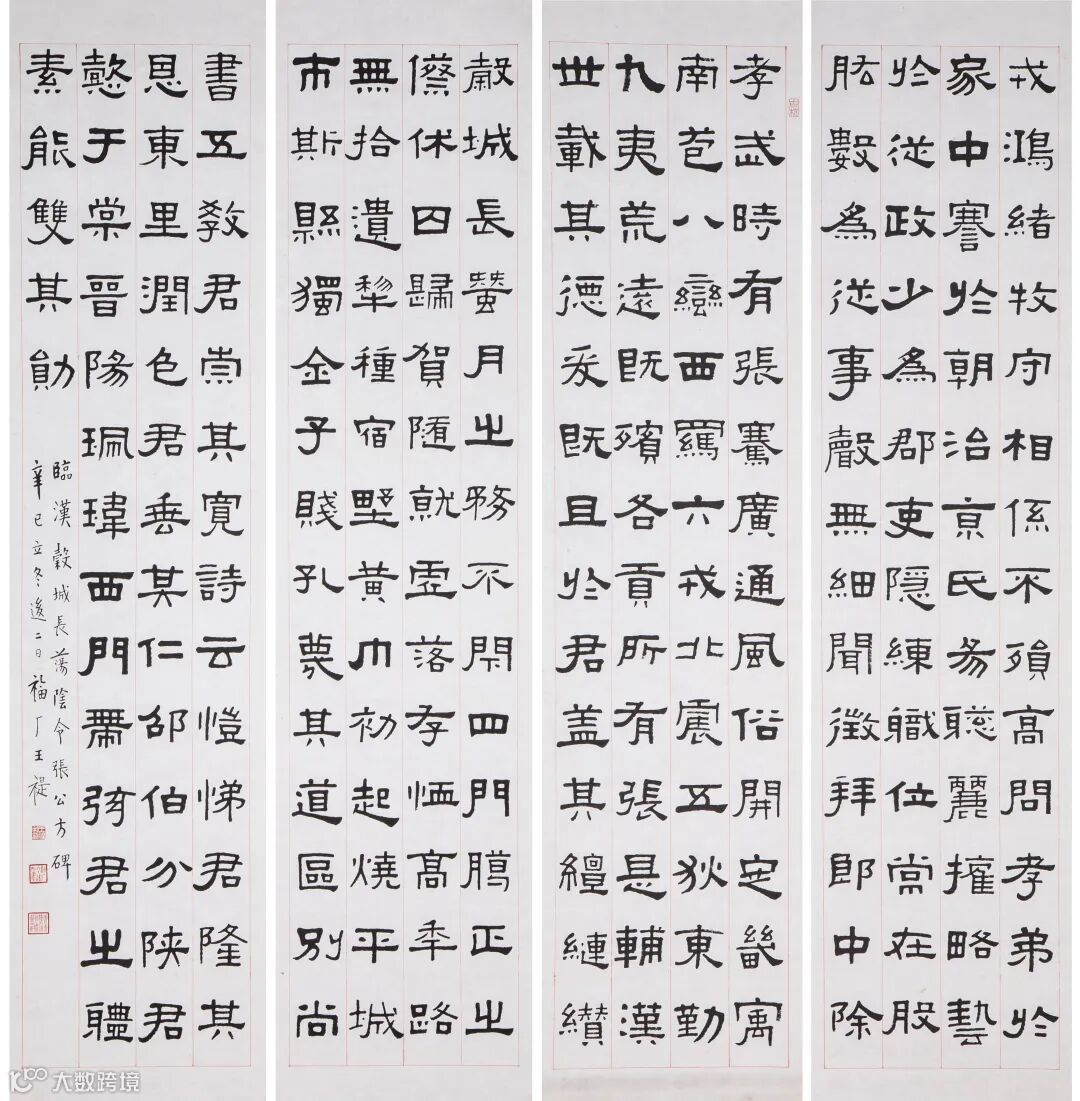 戎鴻緒牧守相係不殞高問孝弟於
家中謇於朝治京氏易聡麗權略藝
於從政少為郡吏隱練職位常在股
肱數為從事聲無細聞徵拜郎中除
孝武時有張騫廣通風俗開定畿寓
南苞八蠻西羈六戎北震五狄東勤
九夷荒遠既殯各貢所有張是輔漢
世載其德爰既且於君蓋其繵縺纘
穀城長蚕月之務不閉四門臈正之
僚休囚歸賀隨就虛落存恤高年路
無拾遺犁種宿野黃巾初起燒平城
市斯縣獨全子賤孔蔑其道區別尚
書五教君崇其寬詩云愷悌君隆其
恩東里潤色君垂其仁邵伯分陝君
懿于棠晉陽珮瑋西門帶弦君之體
素能雙其勛
臨漢穀城長蕩陰令張公方碑
辛巳立冬後二日福厂王禔
大数跨境